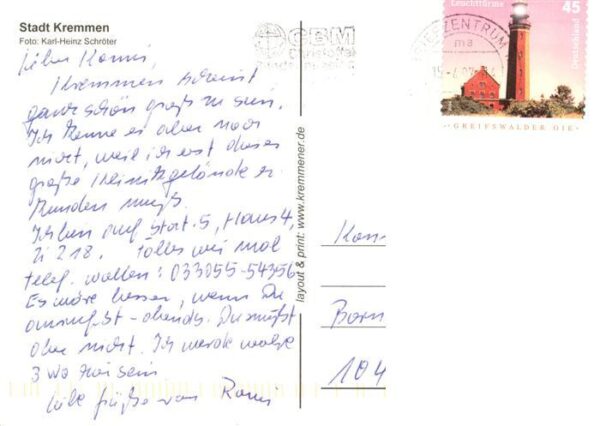 Stadt Kremmen
Foto: Karl-Heinz Schröter
Lieber Konni,
Kremmen scheint
ganz schön groß zu sein.
Ich kenne es aber noch
nicht, weil ich erst dieses
große Klinikgelände er-
kunden muß.
Ich bin auf Stat. 5, Haus 4,
Zi 218. Falls wir mal
telef. wollen: 033055-54356
Es wäre besser, wenn Du
anrufst - abends. Du mußt
aber nicht. Ich werde wohl
3 Wo hier sein
Liebe Grüße von
layout & print: www.kremmener.de
CBM
ZENTRUM
ma
Leuchttürme
45
Deutschland
GREIFSWALDER OIE
Kon
Born
104